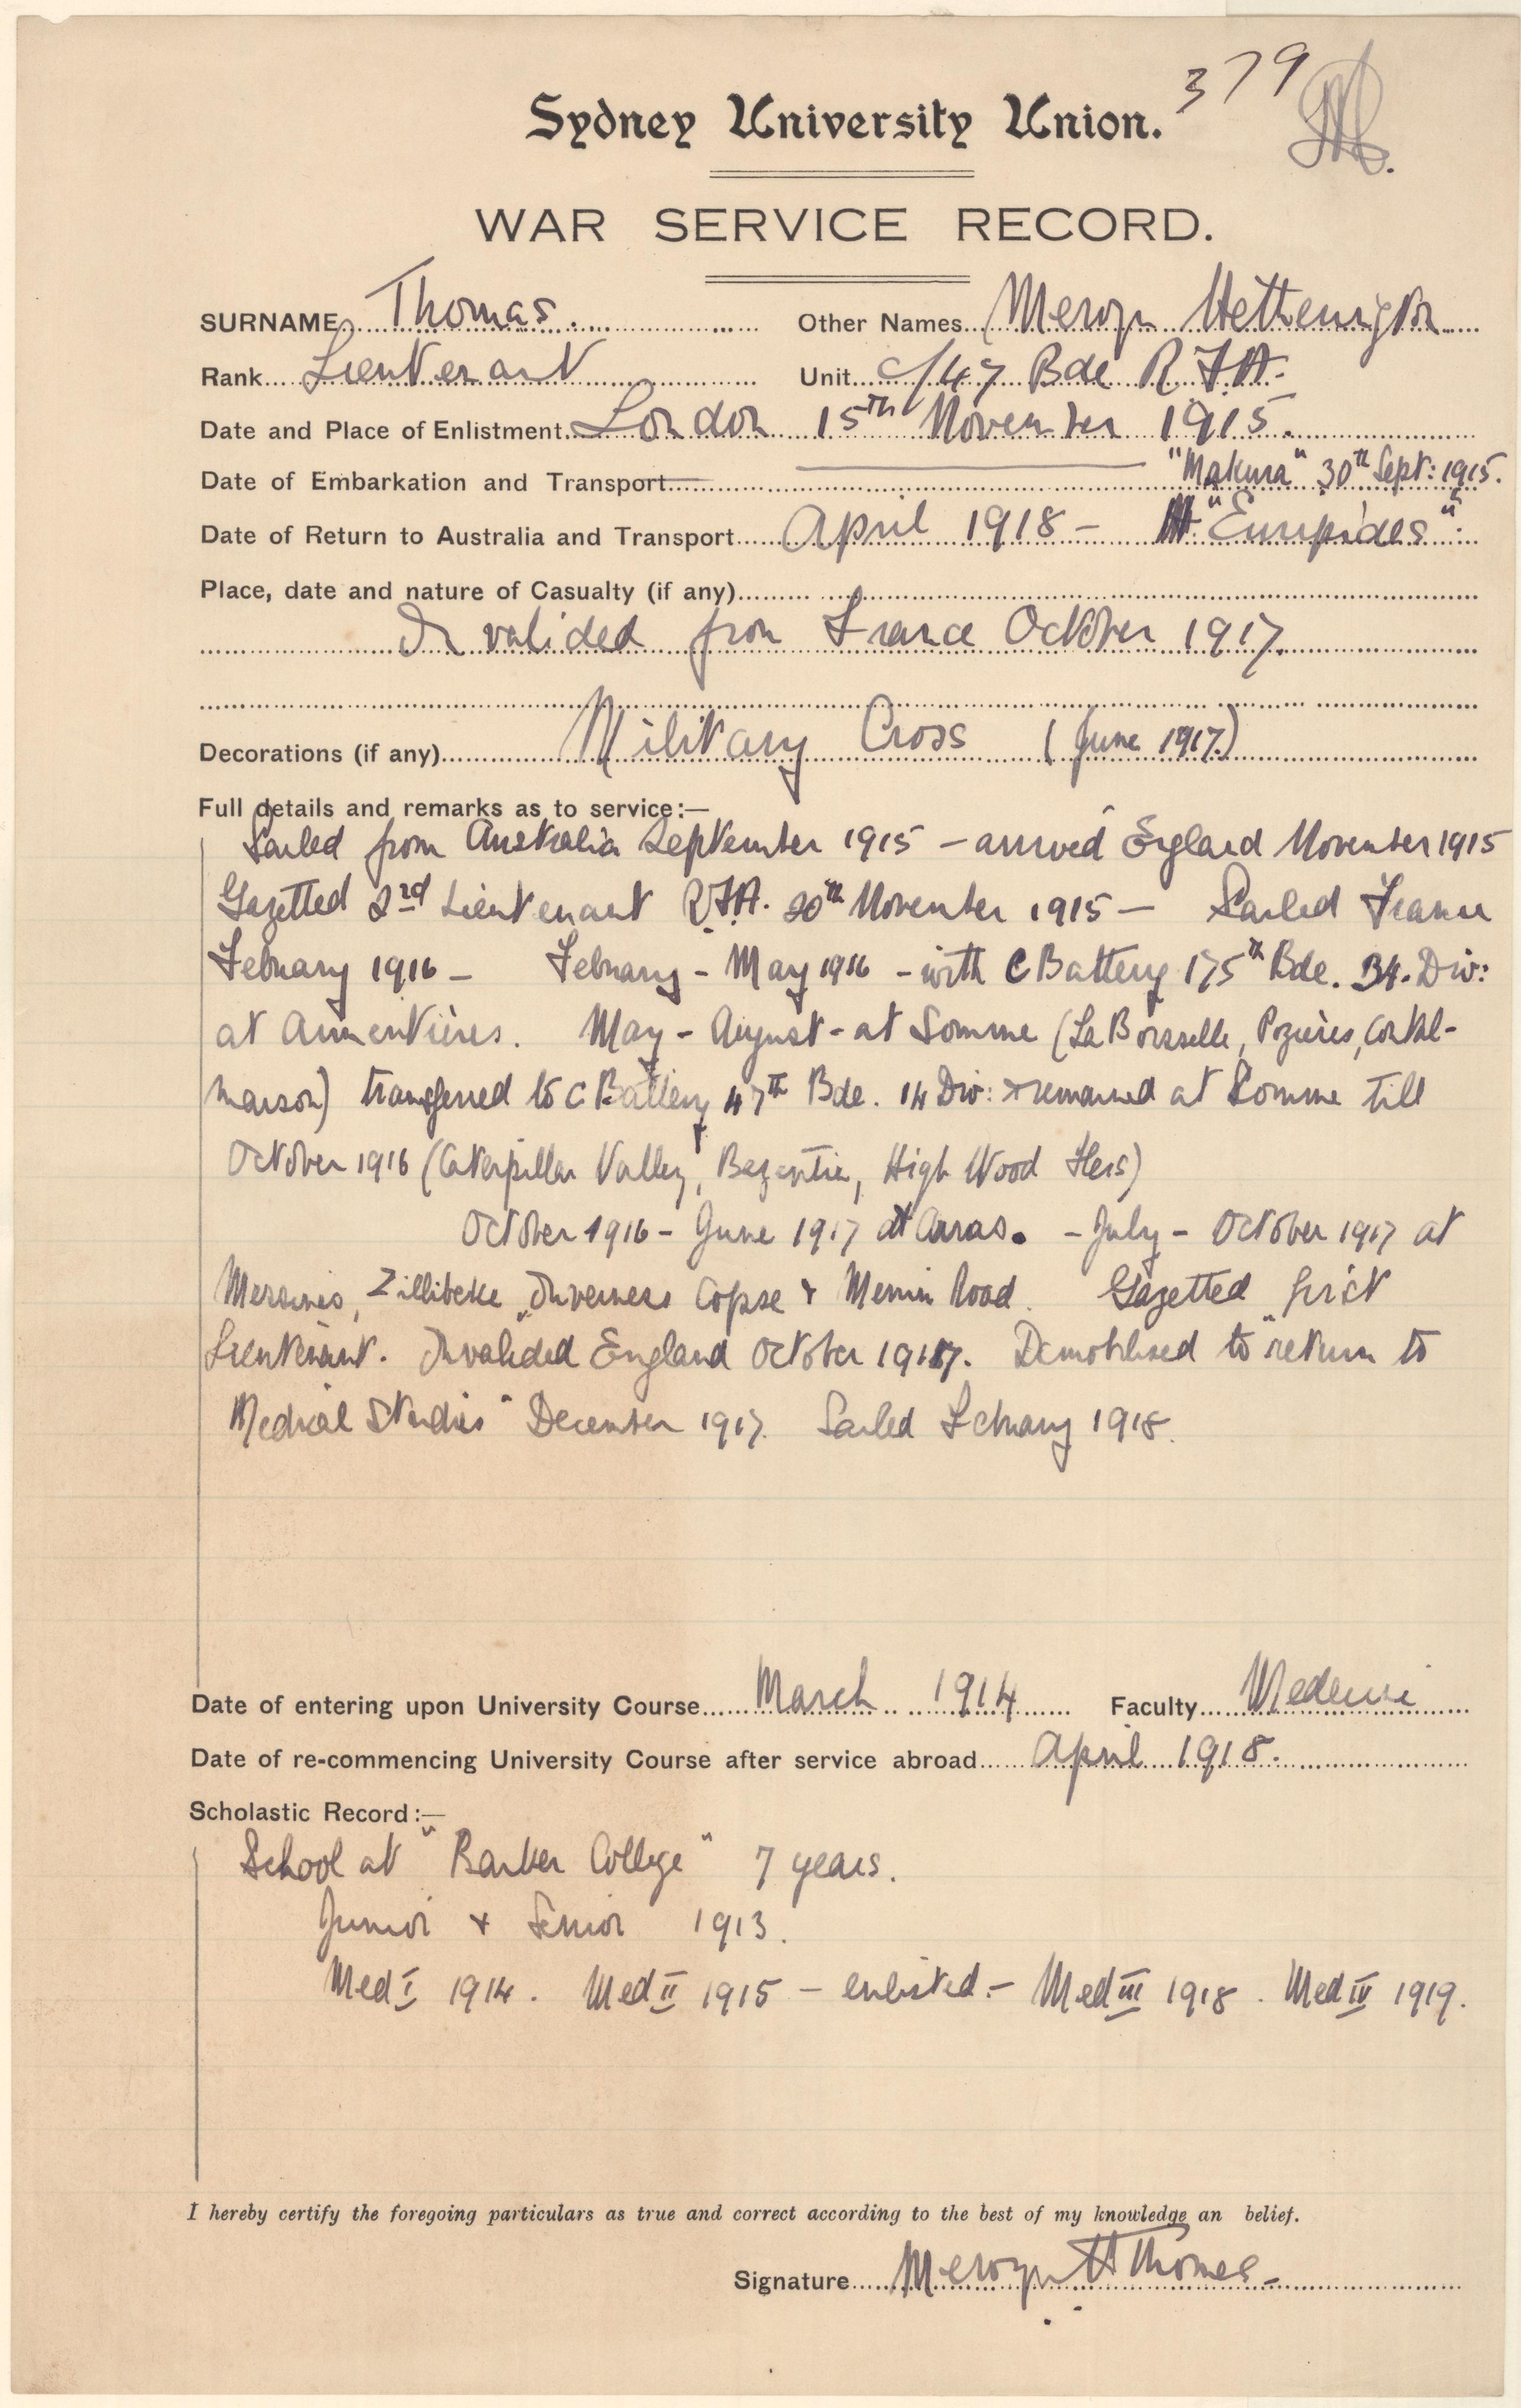 379
Sydney University Union.
WAR SERVICE RECORD.
SURNAME Thomas. Other Names Mervyn Hetherington
Rank Lieutenant Unit C/47 Bde R.F.A.
Date and Place of Enlistment London 15th November 1915.
Date of Embarkation and Transport "Makura" 30th Sept: 1915.
Date of Return to Australia and Transport April 1918 - "Euripides".
Place, date and nature of Casualty (if any)
Invalided from France October 1917.
Decorations (if any) Military Cross (June 1917.)
Full details and remarks as to service:—
Sailed from Australia September 1915 - arrived England November 1915
Gazetted 2nd Lieutenant R.F.A. 20th November 1915 - Sailed France
February 1916 - February - May 1916 - with C Battery 175th Bde. 34. Div:
at Armentières. May - August - at Somme (La Boisselle, Pozières, Contal-
maison) transferred to C Battery 47th Bde. 14 Div: & remained at Somme till
October 1916 (Caterpillar Valley, Bazentin, High Wood Flers)
October 1916 - June 1917 at Arras. - July - October 1917 at
Messines, Zillibeke, Inverness Copse & Menin Road. Gazetted first
Lieutenant. Invalided England October 1917. Demobilised to "return to
Medical Studies" December 1917. Sailed February 1918.
Date of entering upon University Course March 1914 Faculty Medicine
Date of re-commencing University Course after service abroad April 1918.
Scholastic Record:—
School at "Barker College" 7 years.
Junior & Senior 1913.
Med I 1914. Med II 1915 - enlisted. - Med III 1918. Med IV 1919.
I hereby certify the foregoing particulars as true and correct according to the best of my knowledge an belief.
Signature Mervyn H Thomas -